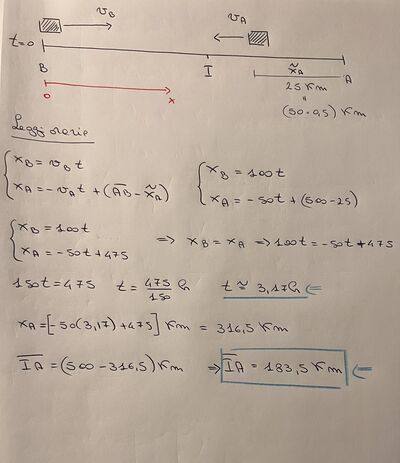 v⃗_B v⃗_A
t=0
B I x̃_A A
25 Km
"
(50·0,5) Km
0 x
Leggi orarie
{ x_B = v_B t
x_A = -v_A t + (A̅B̅ - x̃_A)
{ x_B = 100t
x_A = -50t + (500-25)
{ x_B = 100t
x_A = -50t + 475 => x_B = x_A => 100t = -50t + 475
150t = 475 t = 475/150 h t ≃ 3,17h <=
x_A = [-50(3,17) + 475] Km = 316,5 Km
I̅A̅ = (500 - 316,5) Km => I̅A̅ = 183,5 Km <=